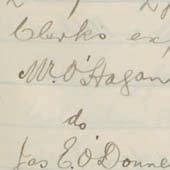 Clerk's ex
Mr. O'Hagan
do
Jas E. O'Donne